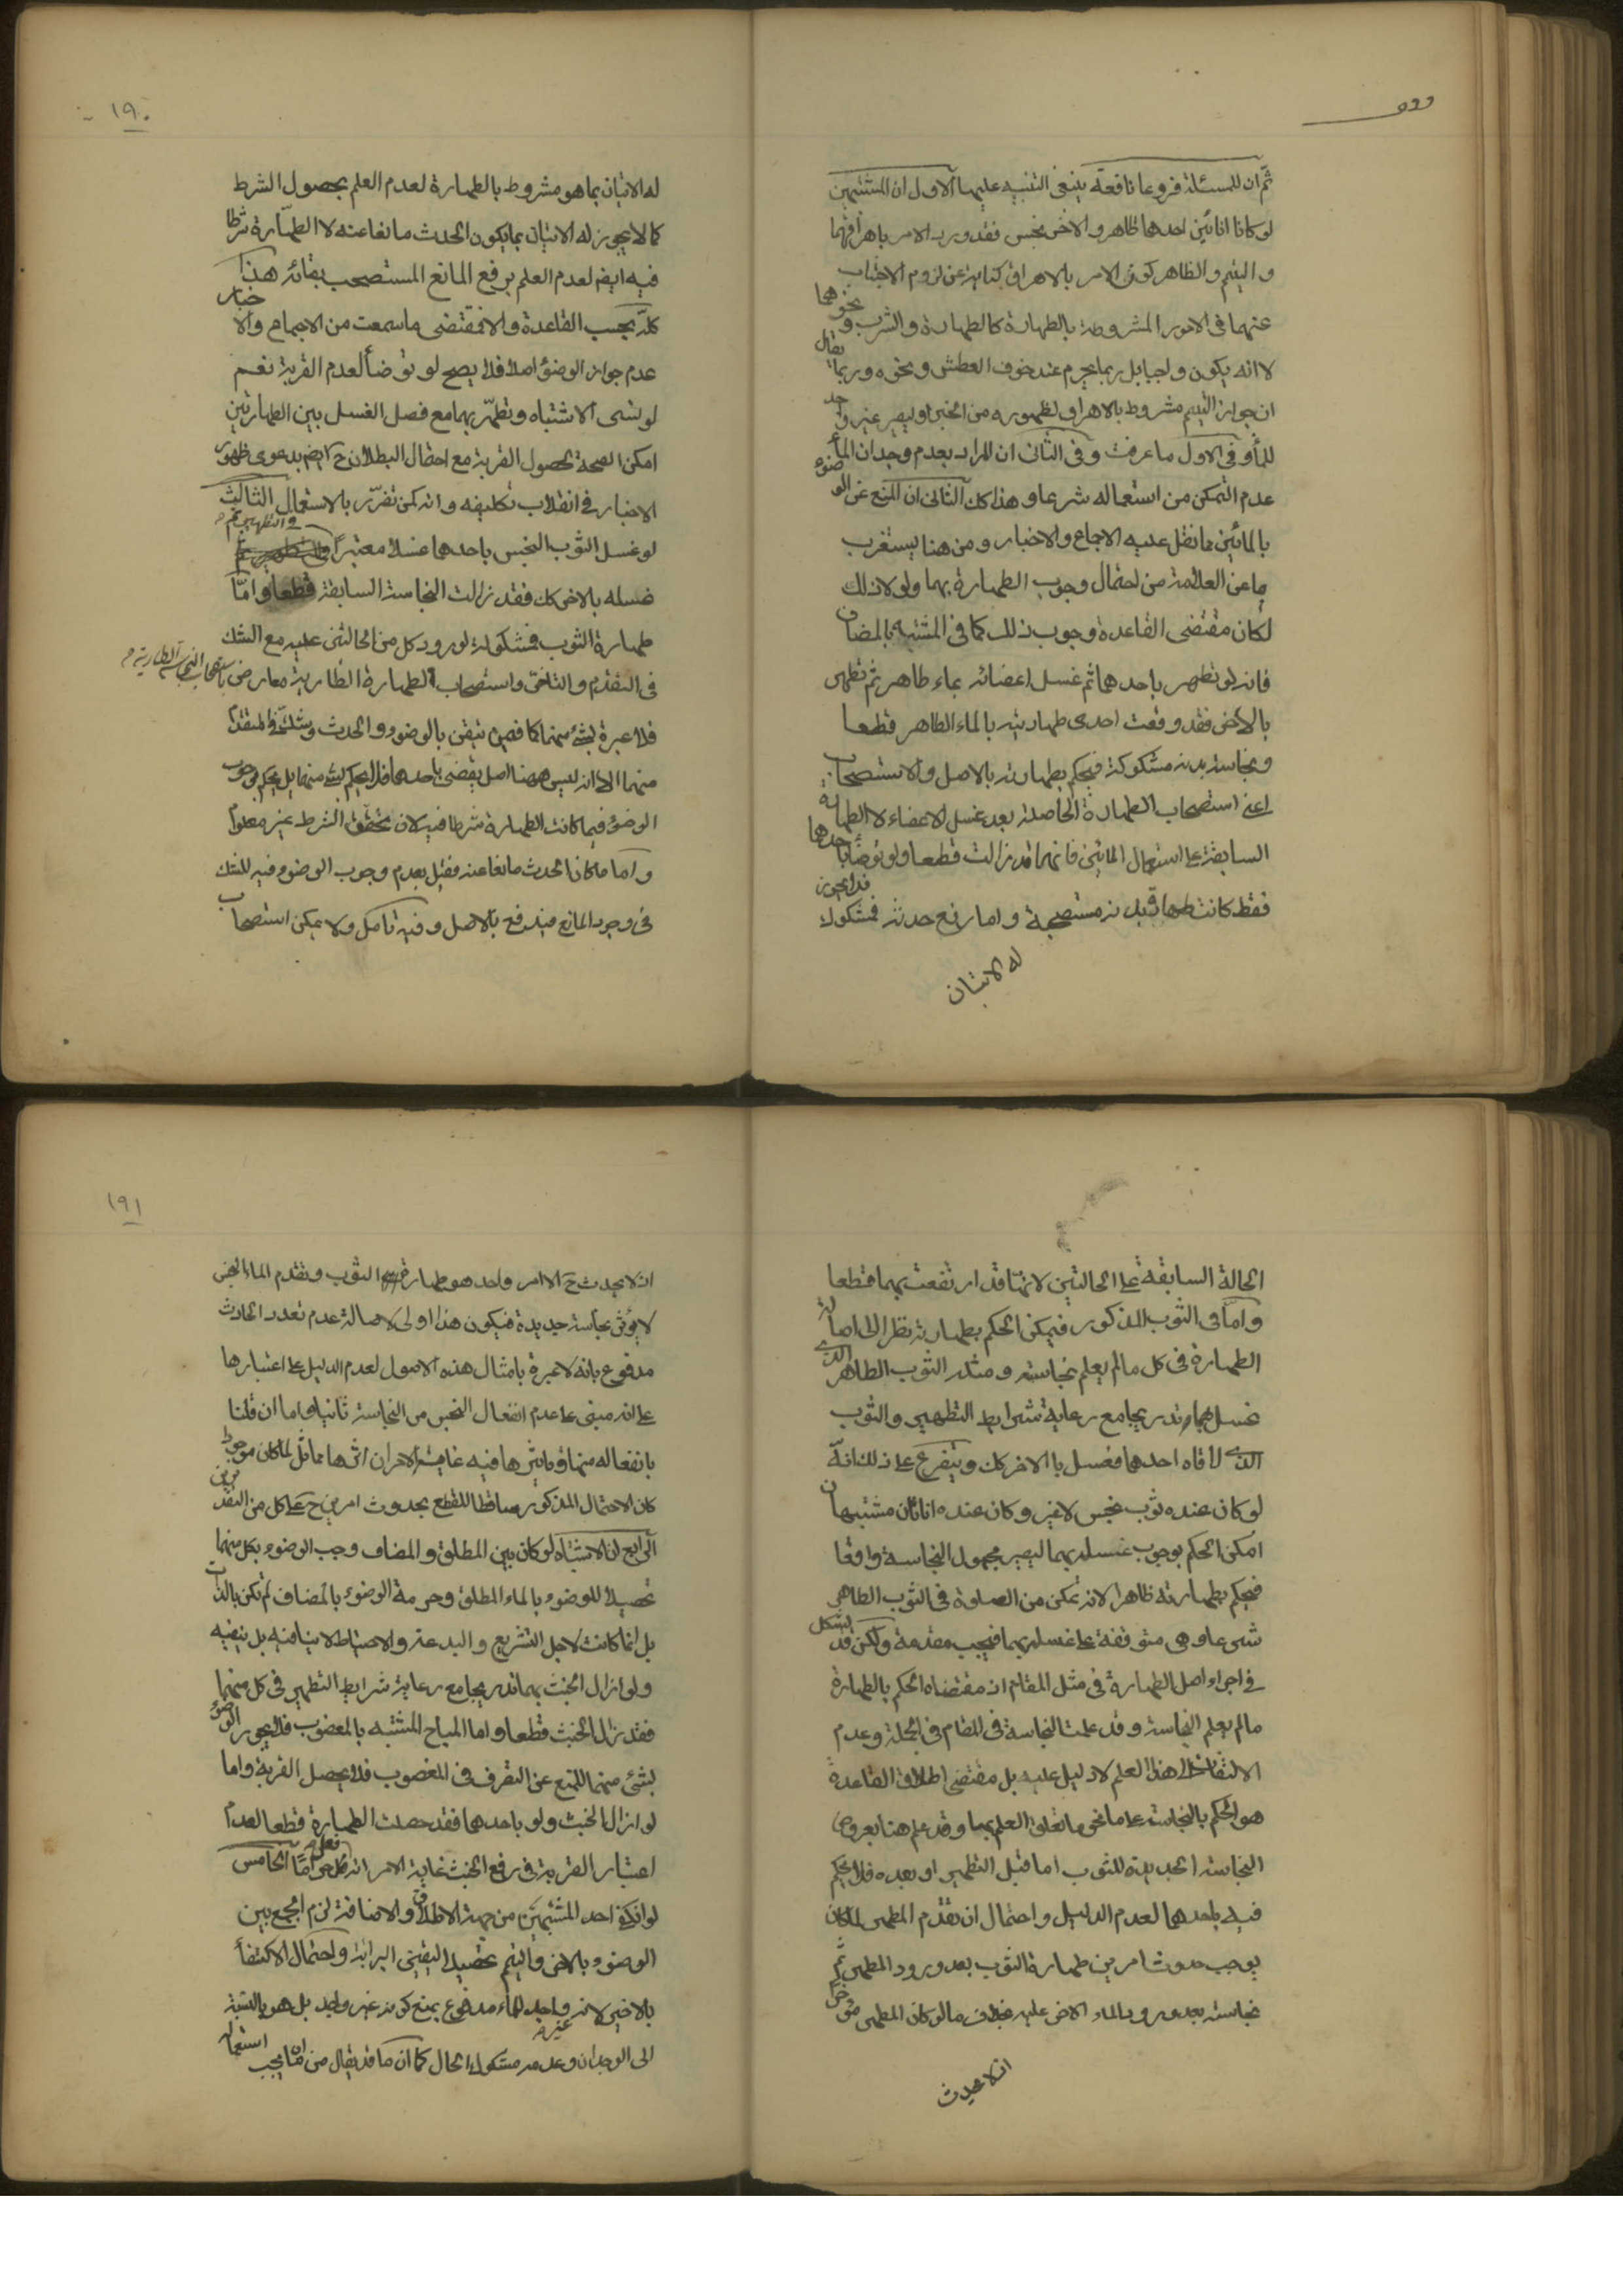 ثم ان للمسئلة فروعا نافعة ينبغى التنبيه عليها الاول ان المشتبهين
لو كانا انائين احدهما طاهر والاخر نجس فقد ورد الامر باهراقهما
و التيمم والظاهر كون الامر بالاهراق كناية عن لزوم الاجتناب
عنهما فى الامور المشروطة بالطهارة كالطهارة والشرب ونحوهما
لا انه يكون واجبا بل ربما يحرم عند خوف العطش ونحوه وربما يقال
ان جواز التيمم مشروط بالاهراق لظهوره من الخبر او ليصير غير واجد
للماء وفى الاول ما عرفت وفى الثانى ان المراد بعدم وجدان الماء
عدم التمكن من استعماله شرعا وهذا كك الثانى ان المنع عن الوضوء
بالمائين مما نقل عليه الاجماع والاخبار ومن هنا يستغرب
ما عن العلامة من احتمال وجوب الطهارة بهما ولولا ذلك
لكان مقتضى القاعدة وجوب ذلك كما فى المشتبه بالمضاف
فانه لو تطهر باحدهما ثم غسل اعضائه بماء طاهر ثم تطهر
بالاخر فقد وقعت احدى طهارتيه بالماء الطاهر قطعا
ونجاسة بدنه مشكوكة فيحكم بطهارته بالاصل والاستصحاب
اعنى استصحاب الطهارة الحاصلة بعد غسل الاعضاء لا الطهارة
السابقة على استعمال المائين فانها قد زالت قطعا ولو توضأ باحدهما
فقط كانت طهارة بدنه مستصحبة واما رفع حدثه فمشكوك فلا يجوز
له الاتيان
١٩٠
له الاتيان بما هو مشروط بالطهارة لعدم العلم بحصول الشرط
كما لا يجوز له الاتيان بما يكون الحدث مانعا عنه لا الطهارة شرطا
فيه ايضا لعدم العلم برفع المانع المستصحب بقائه هذا
كله بحسب القاعدة والا فمقتضى ما سمعت من الاجماع والاخبار
عدم جواز الوضوء اصلا فلا يصح لو توضأ لعدم القربة نعم
لو نسى الاشتباه وتطهر بهما مع فصل الغسل بين الطهارتين
امكن الصحة لحصول القربة مع احتمال البطلان ح ايضا بدعوى ظهور
الاخبار فى انقلاب تكليفه وانه كمن تضرر بالاستعمال الثالث
لو غسل الثوب النجس باحدهما غسلا معتبرا فى التطهير ثم
غسله بالاخر كك فقد زالت النجاسة السابقة قطعا واما
طهارة الثوب فمشكوكة لورود كل من الحالتين عليه مع الشك
فى التقدم والتاخر واستصحاب الطهارة الطارية معارض باستصحاب النجاسة الطارية
فلا عبرة بشئ منهما كما فيمن تيقن بالوضوء والحدث وشك فى المتقدم
منهما الا انه ليس ههنا اصل يقضى باحدهما فلا يحكم بشئ منهما بل يحكم بوجوب
الوضوء فيما كانت الطهارة شرطا فيه لان تحقق الشرط غير معلوم
واما ما كان الحدث مانعا عنه فقيل بعدم وجوب الوضوء فيه للشك
فى وجود المانع فيندفع بالاصل وفيه تامل ولا يمكن استصحاب
الحالة السابقة على الحالتين لانها قد ارتفعت بهما قطعا
واما فى الثوب المذكور فيمكن الحكم بطهارته نظرا الى اصالة
الطهارة فى كل ما لم يعلم نجاسته ومثله الثوب الطاهر الذى
غسل بهما تدريجا مع رعاية شرايط التطهير والثوب
الذى لاقاه احدهما فغسل بالاخر كك ويتفرع على ذلك انه
لو كان عنده ثوب نجس لا غير وكان عنده اناءان مشتبهان
امكن الحكم بوجوب غسله بهما ليصير مجهول النجاسة واقعا
فيحكم بطهارته ظاهرا لانه تمكن من الصلوة فى الثوب الطاهر
شرعا وهى متوقفة على غسله بهما فيجب مقدمة ولكن قد يشكل
فى اجراء اصل الطهارة فى مثل المقام اذ مقتضاه الحكم بالطهارة
ما لم يعلم النجاسة وقد علمت النجاسة فى المقام فى الجملة وعدم
الالتفات الى هذا العلم لا دليل عليه بل مقتضى اطلاق القاعدة
هو الحكم بالنجاسة على ما نحو ما تعلق العلم بها وقد علم هنا بعروض
النجاسة الجديدة للثوب اما قبل التطهير او بعده فلا يحكم
فيه باحدهما لعدم الدليل واحتمال ان تقدم المطهر لما كان
يوجب حدوث امرين طهارة الثوب بعد ورود المطهر ثم
نجاسته بعد ورود الماء الاخر عليه بخلاف ما لو كان المطهر مؤخرا
اذ لا يحدث
١٩١
اذ لا يحدث ح الا امر واحد هو طهارة الثوب وتقدم الماء النجس
لا يؤثر نجاسة جديدة فيكون هذا اولى لاصالة عدم تعدد الحادث
مدفوع بانه لا عبرة بامثال هذه الاصول لعدم الدليل على اعتبارها
على انه مبنى على عدم انفعال النجس من النجاسة ثانيا واما ان قلنا
بانفعاله منها وتاثيرها فيه غاية الامر ان اثرها مماثل لما كان موجودا
كان الاحتمال المذكور ساقطا للقطع بحدوث امرين ح على كل من التقديرين
الرابع ان الاشتباه لو كان بين المطلق والمضاف وجب الوضوء بكل منهما
تحصيلا للوضوء بالماء المطلق وحرمة الوضوء بالمضاف لم تكن بالذات
بل انما كانت لاجل التشريع والبدعة والاحتياط لا ينافيه بل ينفيه
ولو ازال الخبث بهما تدريجا مع رعاية شرايط التطهير فى كل منهما
فقد زال الخبث قطعا واما المباح المشتبه بالمغصوب فلا يجوز الوضوء
بشئ منهما للمنع عن التصرف فى المغصوب فلا يحصل القربة واما
لو ازال الخبث ولو باحدهما فقد حصلت الطهارة قطعا لعدم
اعتبار القربة فى رفع الخبث غاية الامر انه فعل حراما الخامس
لو انكفى احد المشتبهين من جهة الاطلاق والاضافة لزم الجمع بين
الوضوء بالاخر والتيمم تحصيلا لليقين بالبرائة واحتمال الاكتفاء
بالاخير لانه غير واجد للماء مدفوع بمنع كونه غير واجد بل هو بالنسبة
الى الوجدان وعدمه مشكوك الحال كما ان ما قد يقال من انه انما يجب استعمال